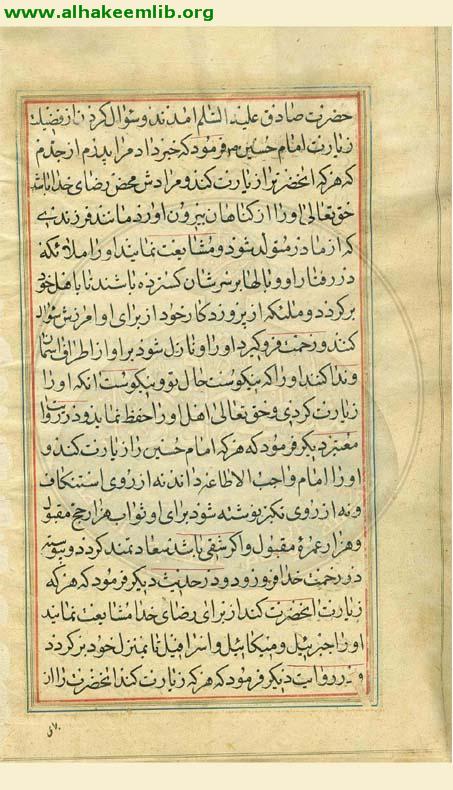 www.alhakeemlib.org
حضرت صادق علیه السّلم امدند و سؤال کردند از فضیلت
زیارت امام حسین فرمود که خبر داد مرا پدرم از جدّم
که هر که انحضرترا زیارت کند و مرادش محض رضای خدا باشد
حق تعالی او را از کناهان بیرون اورد مانند فرزندی
که از مادر متولّد شود و مشایعت نمایند او را ملائکه
در رفتار او و بالها بر سرشان کسترده باشند تا باهل خود
بر کردد و ملئکه از پروردکار خود از برای او امرزش سؤال
کنند و رحمت فرو کیرد او را و نازل شود بر او از اطراف اسمان
و ندا کنند او را که نیکوست حال تو و نیکوست انکه او را
زیارت کردی و حق تعالی اهل او را حفظ نماید و در روایت
معتبر دیکر فرمود که هر که امام حسین را زیارت کند و
او را امام واجب الاطاعه داند نه از روی استنکاف
و نه از روی تکبّر نوشته شود برای او ثواب هزار حجّ مقبول
و هزار عمرهٔ مقبول و اکر شقی باشد سعادتمند کردد و پیوسته
در رحمت خدا فرو رود و در حدیث دیکر فرمود که هر که
زیارت انحضرت کند از برای رضای خدا مشایعت نمایند
او را جبرئیل و میکائیل و اسرافیل تا بمنزل خود بر کردد
و در روایت دیکر فرمود که هر که زیارت کند انحضرت را از